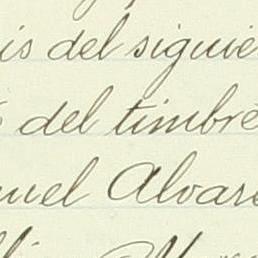 is del siguie
del timbre
uel Alvare